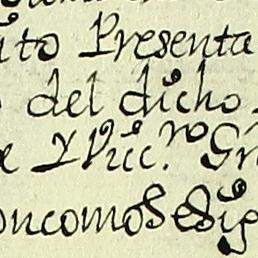 ito Presenta
del dicho
e Y Vic.ro Gr
oncomo Se Sig